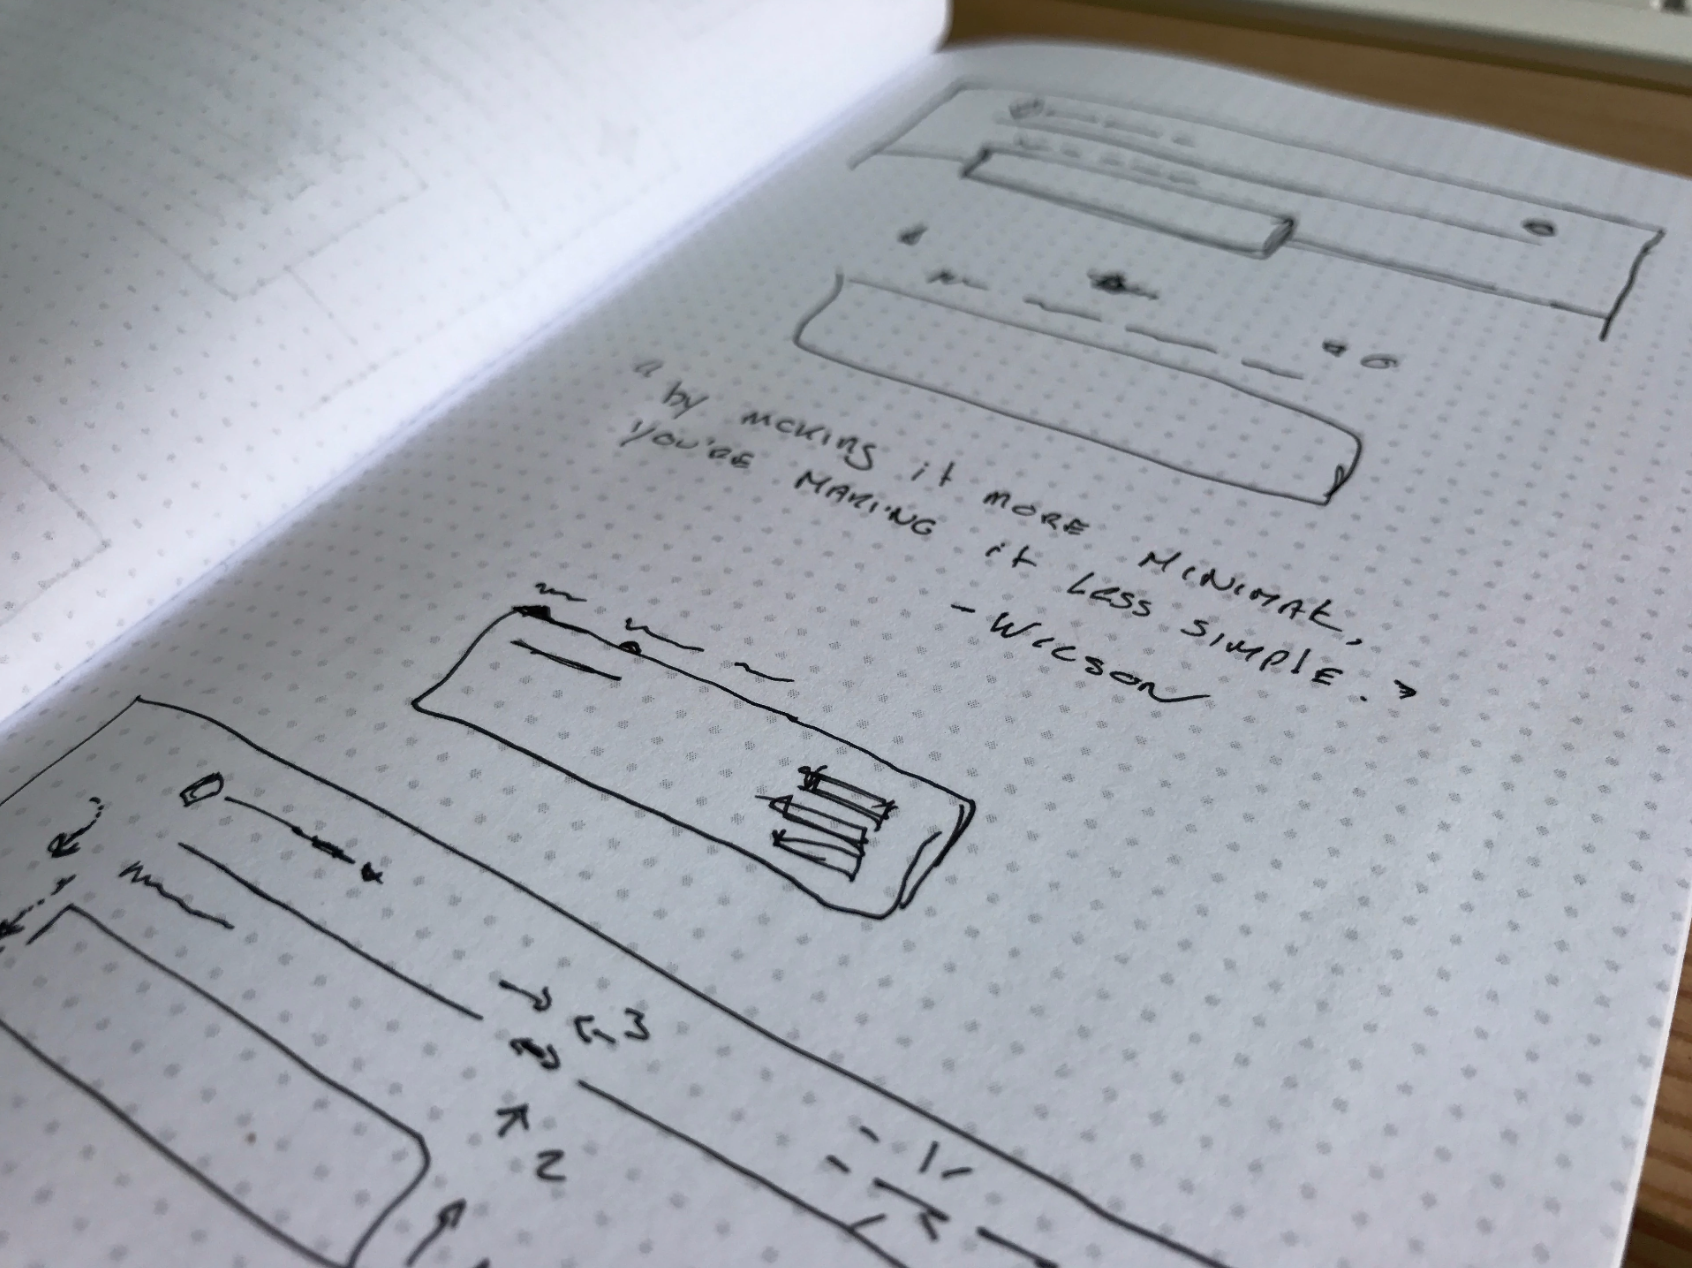 "by making it more MINIMAL,
you're MAKING it Less simple."
- Wilson
3
2